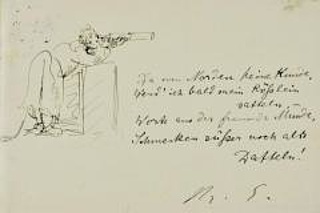 Da vom Norden keine Kunde,
Werd' ich bald mein Rößlein
satteln.
Worte aus der Freunde Munde,
Schmecken süßer noch als
Datteln!